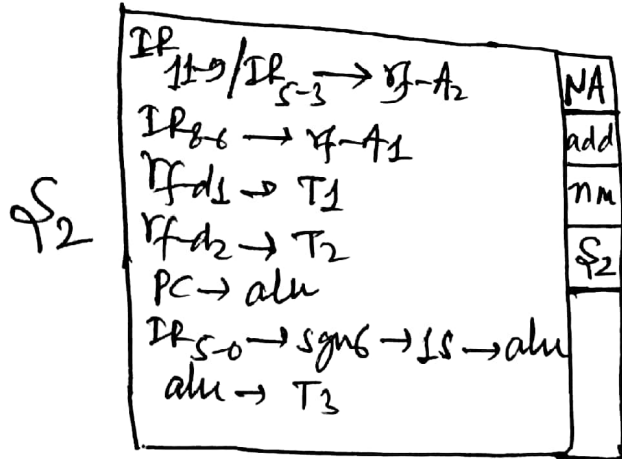 IR11-9/IR5-3 → rf-A2
IR8-6 → rf-A1
rf-d1 → T1
rf-d2 → T2
PC → alu
IR5-0 → sgn6 → 1S → alu
alu → T3
S2
NA
add
nm
S2